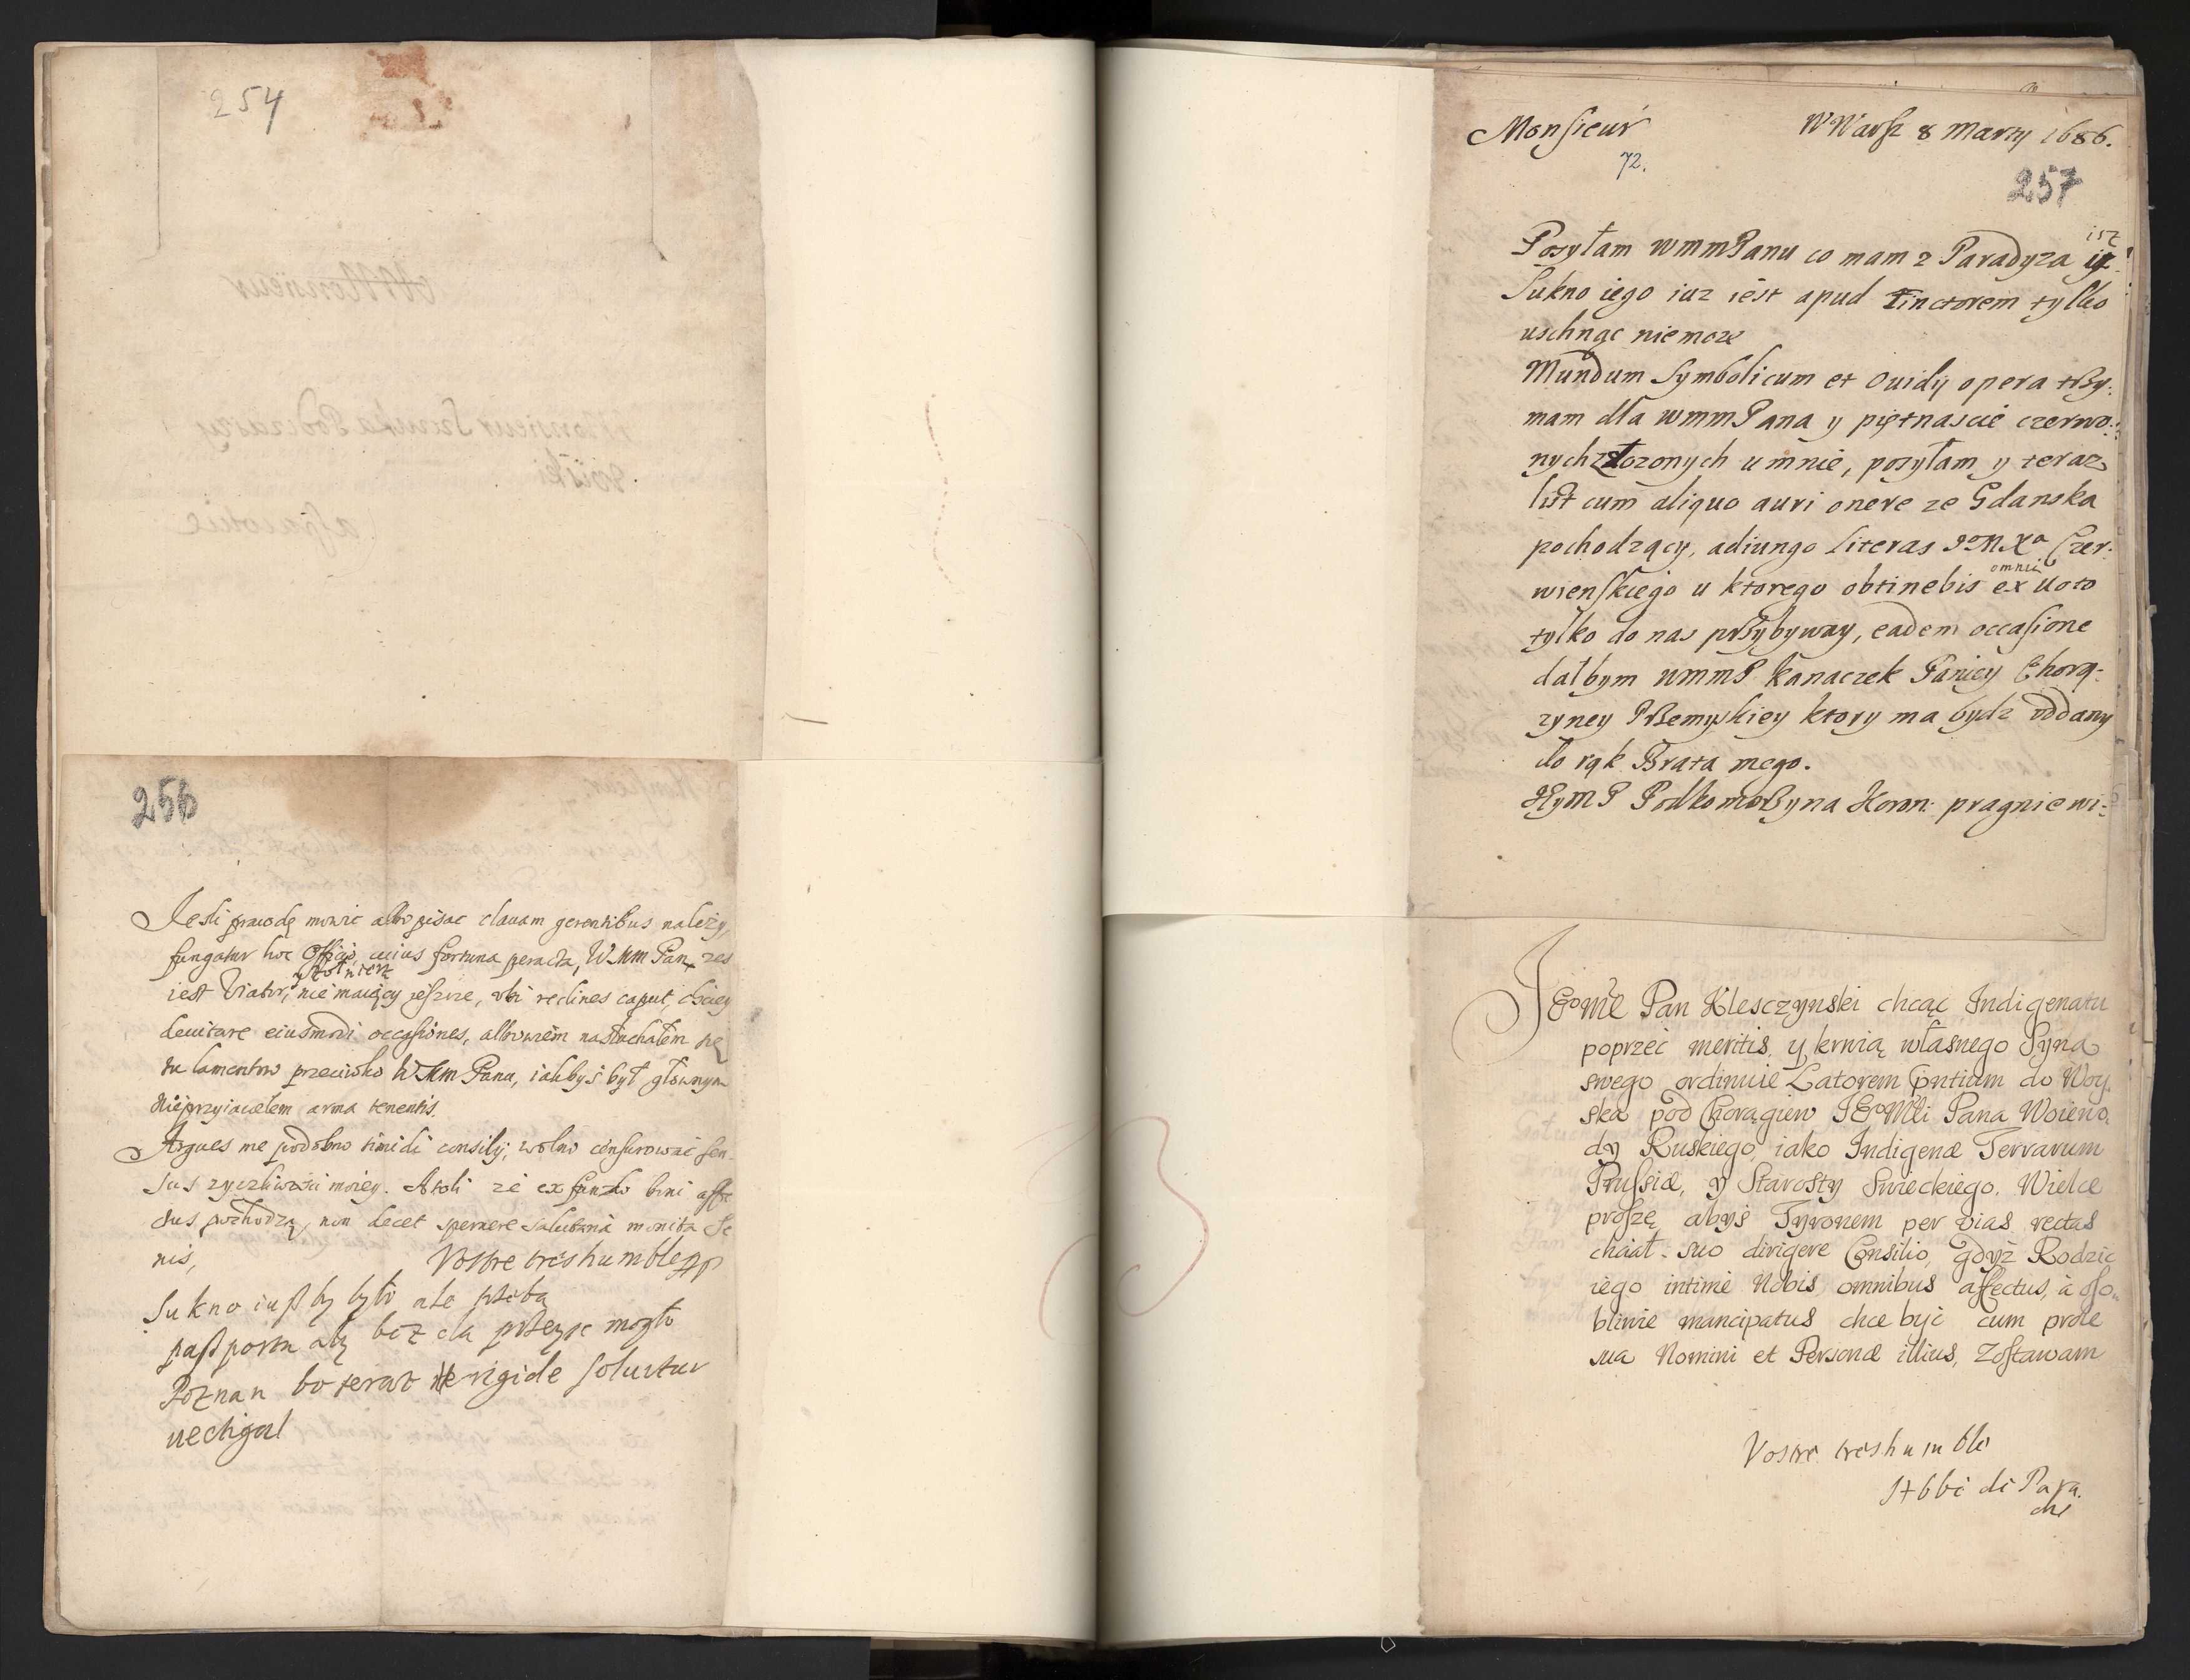 254
256
Jesli prawdę mowic albo pisac clauam gerentibus należy,
fungatur hoc Officio, cuius fortuna peracta, WMm Pan zes
y Zołnierz
iest Viator, nie maiący jeszcze, vbi reclines caput, chciey
deuitare eiusmodi occasiones, albowiem nasłuchałem się
tu lamentow przeciwko WMm Panu, iakbyś był głownym
Nieprzyiacielem arma tenentis.
Argues me podobno timidi consilij; wolno censurowac sen-
sus zyczliwosci moiey. Atoli ze ex fundo boni affe
ctus pochodzą, non decet spernere salutaria monita Se
nis,
Vostre treshumble
Sukno iusz by było ale trzeba
paszportu aby bez cła przeysc mogło
Poznan bo teraz rigide soluitur
uectigal
Monsieur
W Warsz 8 Marzy 1686.
72.
257
Posyłam WmmPanu co mam z Paradyza isz
Sukno iego iuz iest apud Tinctorem tylko
uschnąc niemoze
Mundum Symbolicum et Ouidij opera trzy-
mam dla WmmPana y piętnascie czerwo:
nych złozonych u mnie, posyłam y teraz
list cum aliquo auri onere ze Gdanska
pochodzący, adiungo literas Czer-
omnia
wienskiego u ktorego obtinebis ex uoto
tylko do nas przybyway, eadem occasione
dałbym WmmP Kanaczek Paniey Chorą-
zyney Przemyskiey ktory ma bydz oddany
do rąk Brata mego.
JeymP Podkomorzyna Koron: pragnie wi-
JEoMć Pan Klesczynski chcąc Indigenatu
poprzeć meritis y krwią własnego Syna
swego ordinuie Latorem pntium do Woy-
ska pod Chorągiew JEoMści Pana Woiewo
dy Ruskiego, iako Indigenæ Terrarum
Prussiæ, y Starosty Swieckiego. Wielce
proszę abyś Tyronem per vias rectas
chciał suo dirigere Consilio, gdyż Rodzic
iego intimè Nobis omnibus affectus, à oso-
bliwie mancipatus chce być cum prole
sua Nomini et Personæ illius, Zostawam
Vostre treshumble
Abbé di Para
dis